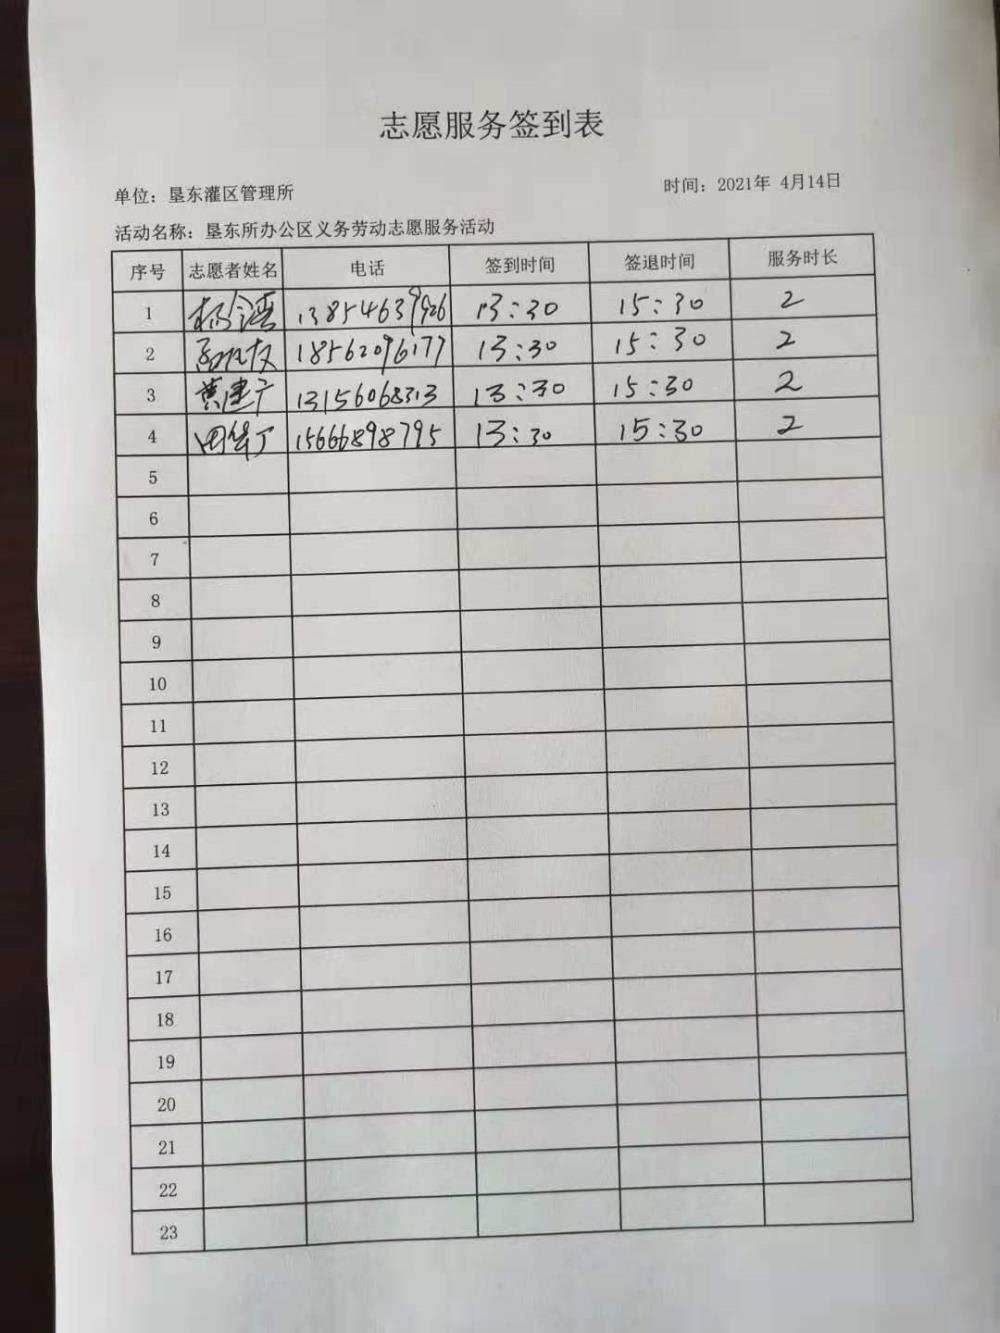 志愿服务签到表
单位：垦东灌区管理所 时间：2021年 4月14日
活动名称：垦东所办公区义务劳动志愿服务活动
序号 志愿者姓名 电话 签到时间 签退时间 服务时长
1 13854639926 13:30 15:30 2
2 18562096177 13:30 15:30 2
3 黄建广 13156068313 13:30 15:30 2
4 15666898795 13:30 15:30 2
5
6
7
8
9
10
11
12
13
14
15
16
17
18
19
20
21
22
23